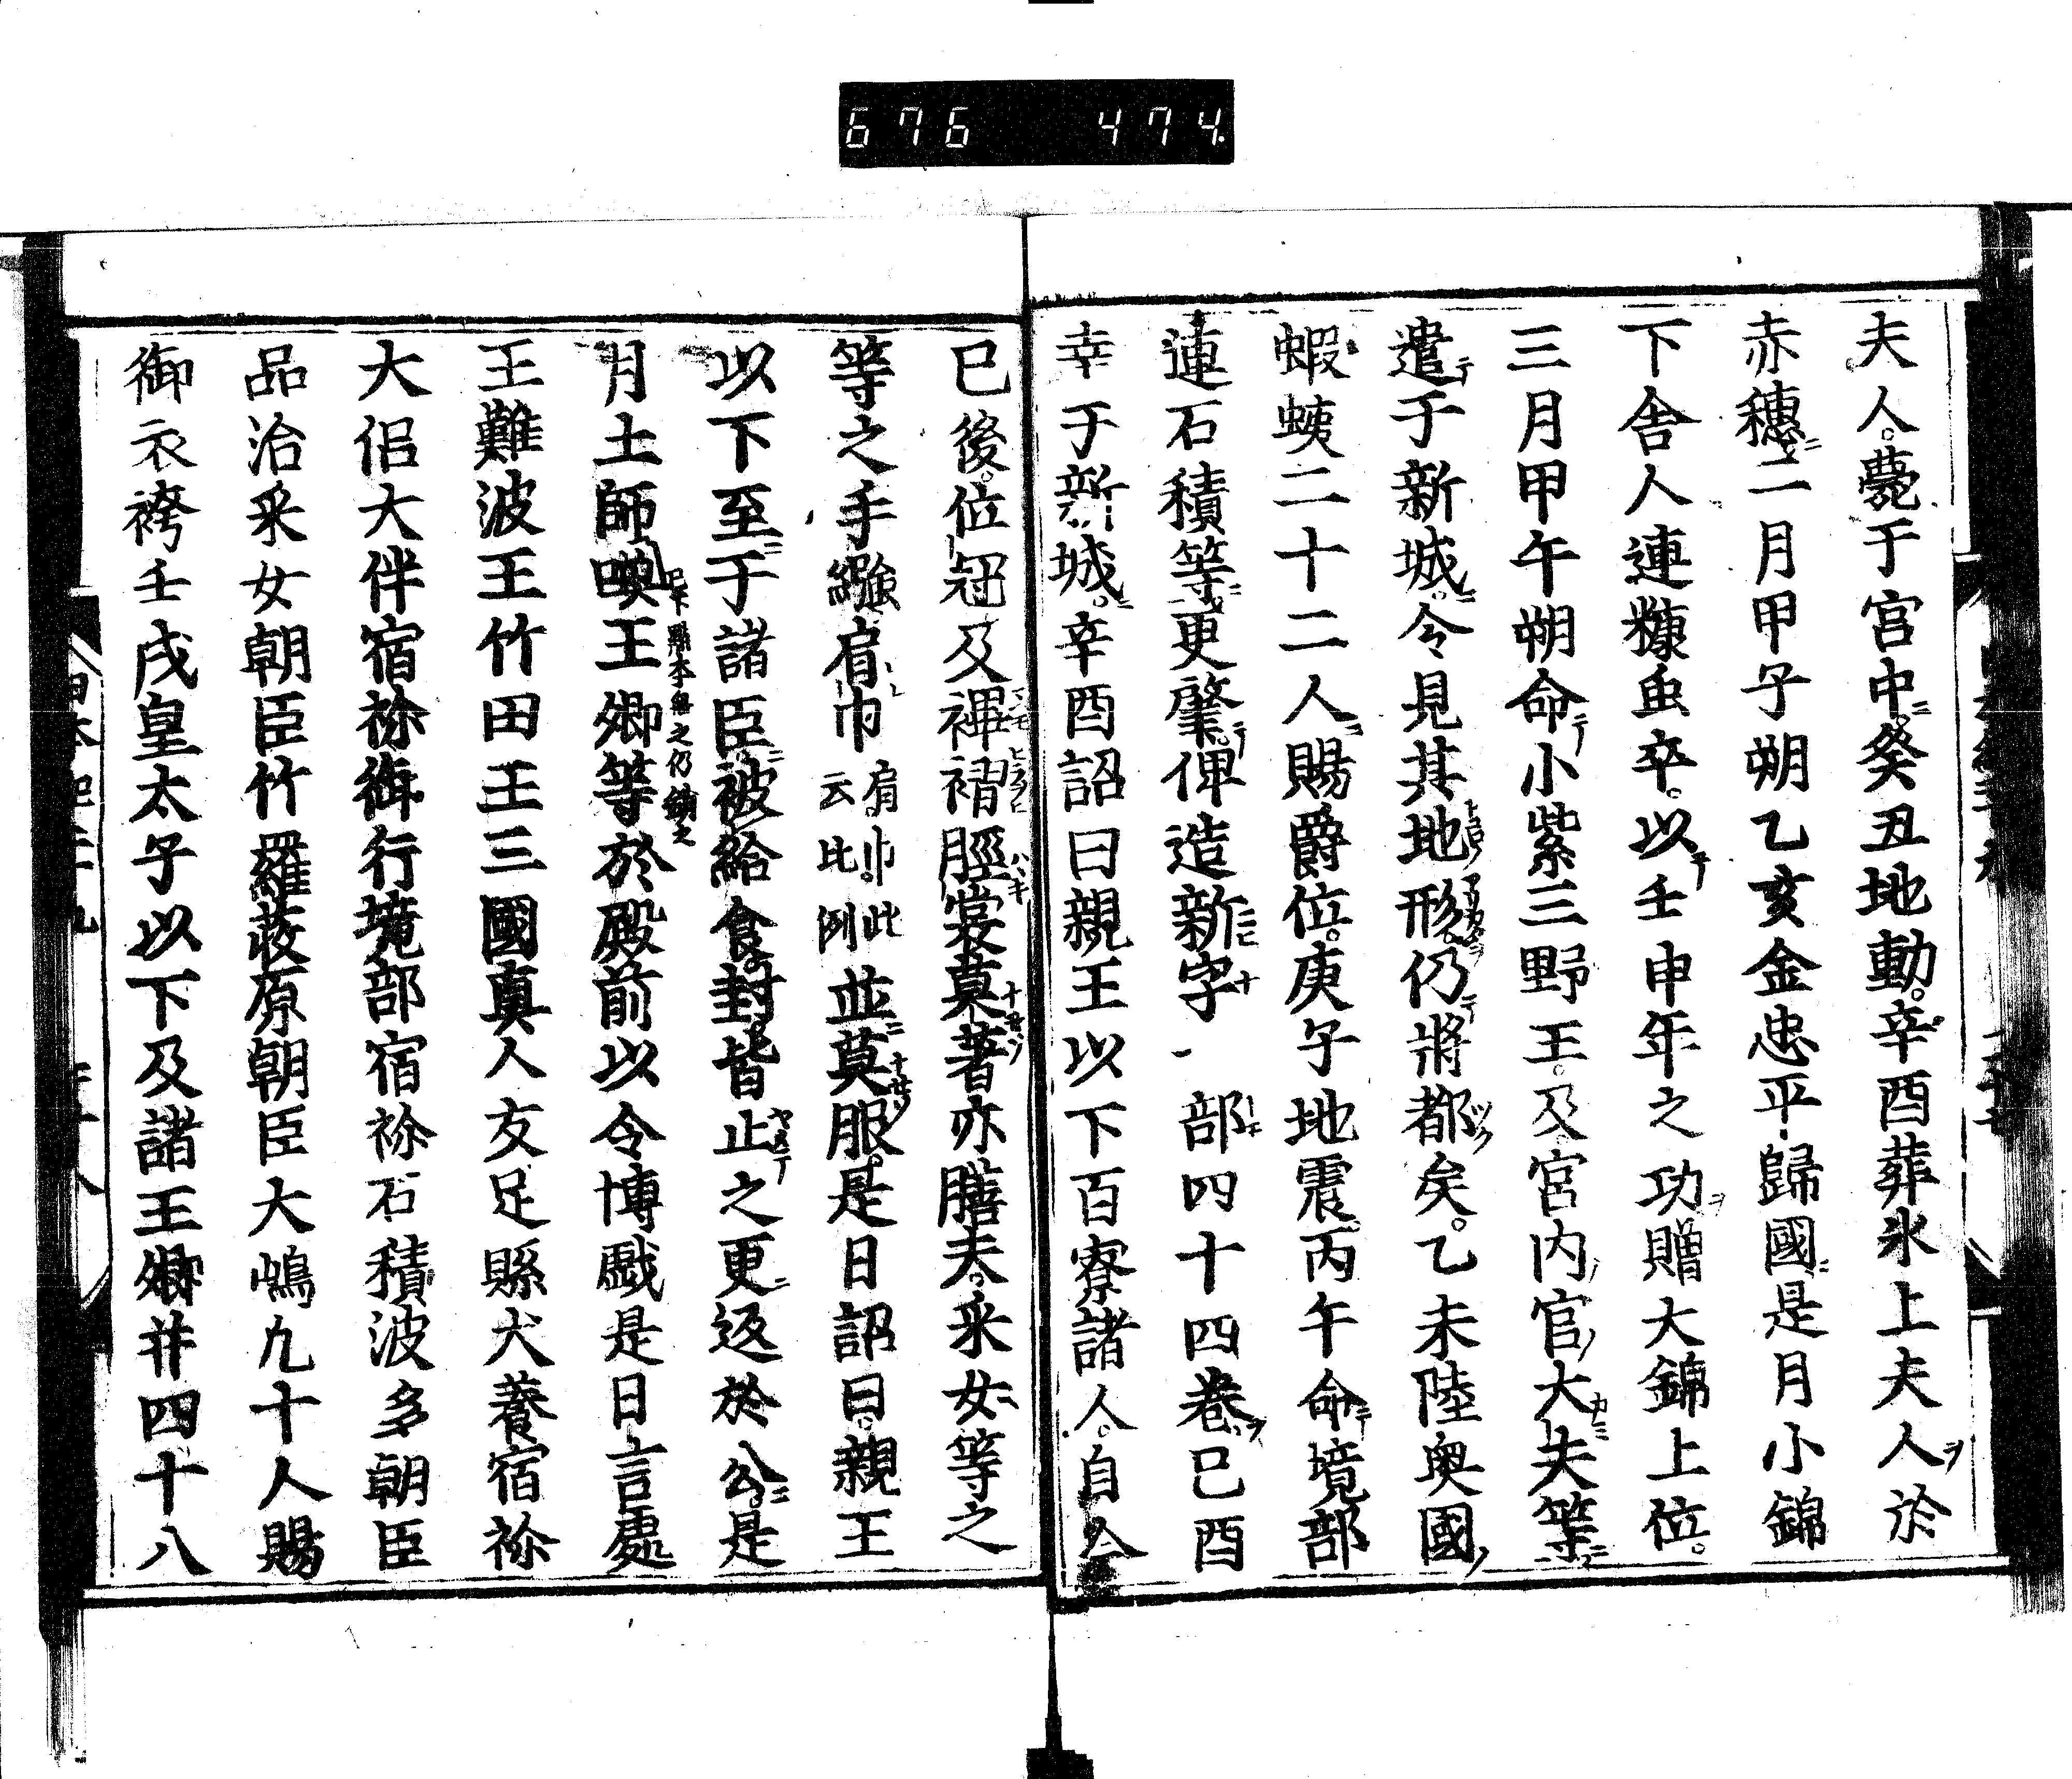 676 474.
夫人薨于宮中癸丑地動辛酉葬氷上夫人於
赤穗二月甲子朔乙亥金忠平歸國是月小錦
下舎人連糠虫卒以壬申年之功贈大錦上位
三月甲午朔命小紫三野王及宮内官大夫等
遣于新城令見其地形仍將都矣乙未陸奥國
蝦蛦二十二人賜爵位庚午地震丙午命境部
連石積等更肇俾造新字一部四十四巻己酉
幸于新城辛酉詔曰親王以下百寮諸人自今
已後位冠及褌褶脛裳莫著亦膳夫釆女等之
等之手繦肩巾肩巾此云比例並莫服是日詔曰親王
以下至于諸臣被給食封皆止之更返於公是
月土師㗨王卿等於殿前以令博戯是日言處
王難波王竹田王三國真人友足縣犬養宿祢
大侶大伴宿祢御行境部宿祢石積波多朝臣
品治釆女朝臣竹羅蔉原朝臣大嶋九十人賜
御衣袴壬戌皇太子以下及諸王卿并四十八